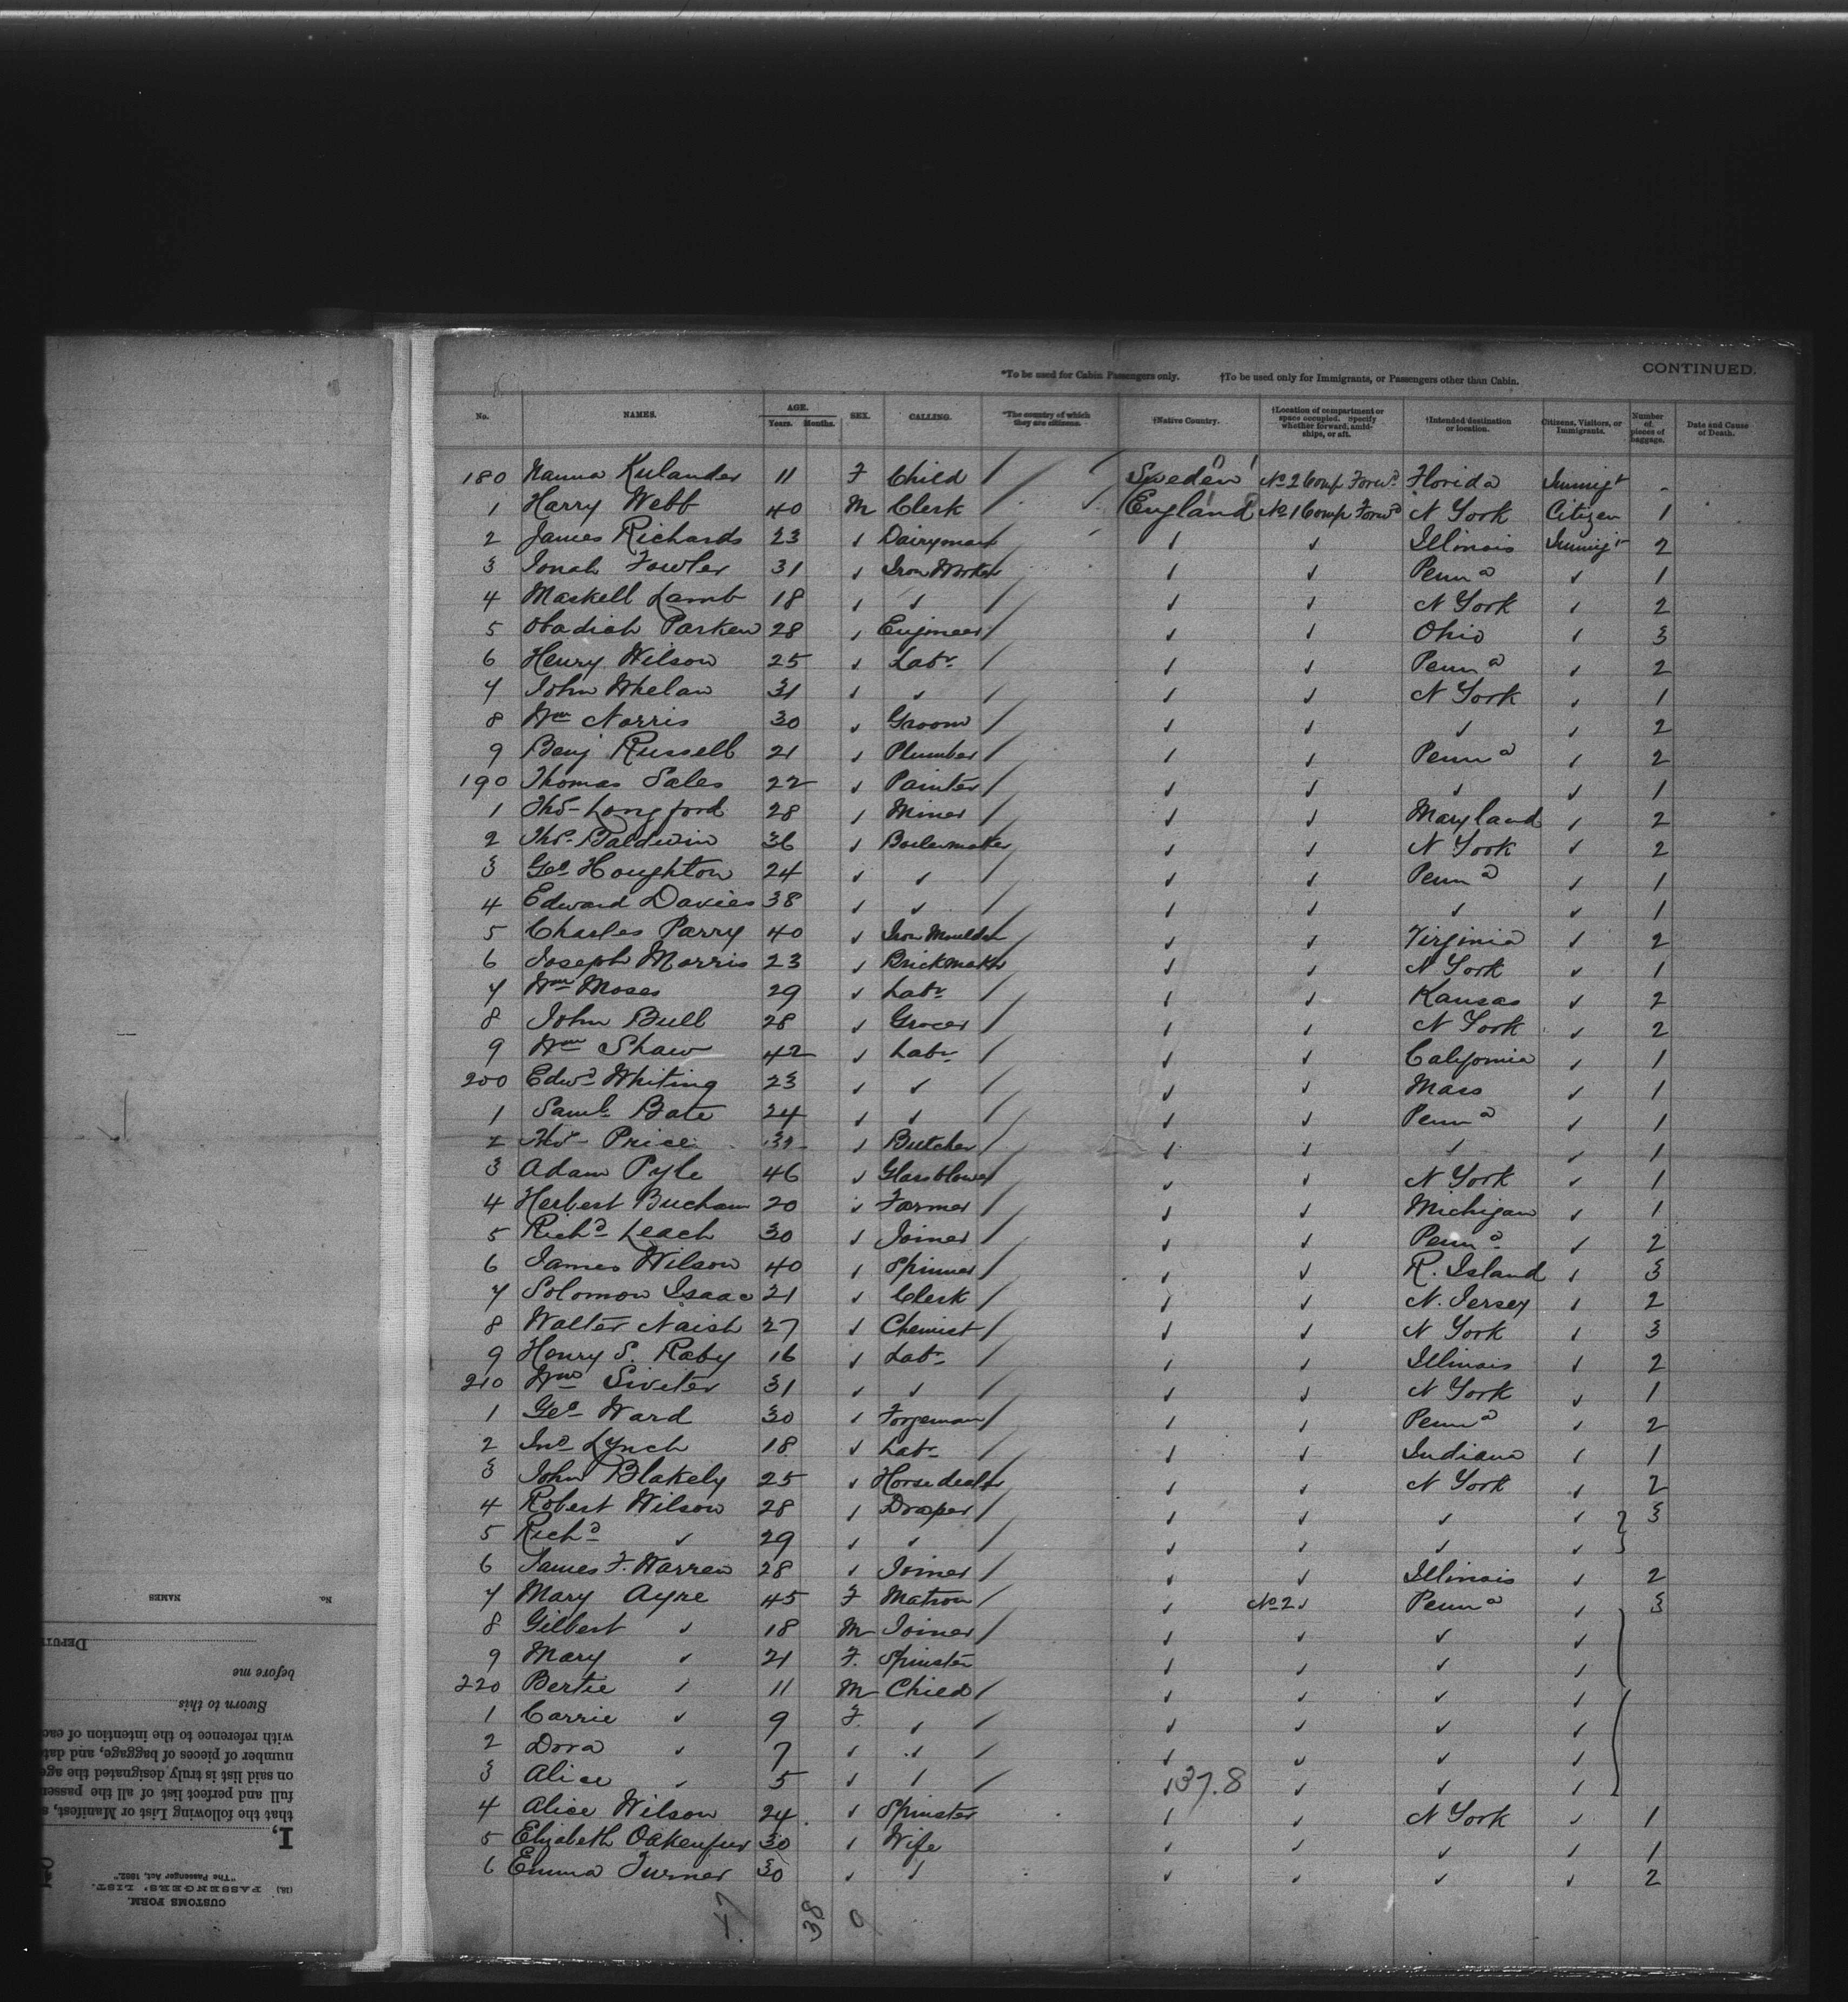 CONTINUED.
*To be used for Cabin Passengers only. †To be used only for Immigrants, or Passengers other than Cabin.
No. NAMES. AGE. Years. Months. SEX. CALLING. *The country of which they are citizens. †Native Country. †Location of compartment or space occupied. Specify whether forward, amidships, or aft. †Intended destination or location. Citizens, Visitors, or Immigrants. Number of pieces of baggage. Date and Cause of Death.
180 Nanna Kulander 11 F Child / Sweden No 2 Comp Forwd Florida Immigt -
1 Harry Webb 40 M Clerk / England No 1 Comp Forwd N York Citizen 1
2 James Richards 23 ✓ Dairyman ✓ ✓ Illinois Immigt 2
3 Jonah Fowler 31 ✓ Iron Worker ✓ ✓ Penna ✓ 1
4 Maskell Lamb 18 ✓ ✓ / ✓ ✓ N York ✓ 2
5 Obadiah Parken 28 ✓ Engineer / ✓ ✓ Ohio ✓ 3
6 Henry Wilson 25 ✓ Labr / ✓ ✓ Penna ✓ 2
7 John Whelan 31 ✓ ✓ / ✓ ✓ N York ✓ 1
8 Wm Norris 30 ✓ Groom / ✓ ✓ ✓ ✓ 2
9 Benj Russell 21 ✓ Plumber / ✓ ✓ Penna ✓ 2
190 Thomas Sales 22 ✓ Painter / ✓ ✓ ✓ ✓ 1
1 Thos Longford 28 ✓ Miner / ✓ ✓ Maryland ✓ 2
2 Thos Baldwin 36 ✓ Boilermaker ✓ ✓ N York ✓ 2
3 Geo Houghton 24 ✓ ✓ / ✓ ✓ Penna ✓ 1
4 Edward Davies 38 ✓ ✓ / ✓ ✓ ✓ ✓ 1
5 Charles Parry 40 ✓ Iron Moulder ✓ ✓ Virginia ✓ 2
6 Joseph Morris 23 ✓ Brickmaker ✓ ✓ N York ✓ 1
7 Wm Moses 29 ✓ Labr / ✓ ✓ Kansas ✓ 2
8 John Bull 28 ✓ Grocer / ✓ ✓ N York ✓ 2
9 Wm Shaw 42 ✓ Labr / ✓ ✓ California ✓ 1
200 Edwd Whiting 23 ✓ ✓ / ✓ ✓ Mass ✓ 1
1 Saml Bate 24 ✓ ✓ / ✓ ✓ Penna ✓ 1
2 Thos Price ✓ Butcher / ✓ ✓ ✓ ✓ 1
3 Adam Pyle 46 ✓ Glassblower ✓ ✓ N York ✓ 1
4 Herbert Bucham 20 ✓ Farmer / ✓ ✓ Michigan ✓ 1
5 Richd Leach 30 ✓ Joiner / ✓ ✓ Penna ✓ 2
6 James Wilson 40 ✓ Spinner / ✓ ✓ R. Island ✓ 3
7 Solomon Isaac 21 ✓ Clerk / ✓ ✓ N. Jersey ✓ 2
8 Walter Naish 27 ✓ Chemist / ✓ ✓ N York ✓ 3
9 Henry S. Raby 16 ✓ Labr / ✓ ✓ Illinois ✓ 2
210 Wm Siviter 31 ✓ ✓ / ✓ ✓ N York ✓ 1
1 Geo Ward 30 ✓ Forgeman / ✓ ✓ Penna ✓ 2
2 Jno Lynch 18 ✓ Labr / ✓ ✓ Indiana ✓ 1
3 John Blakely 25 ✓ Horse dealer ✓ ✓ N York ✓ 2
4 Robert Wilson 28 ✓ Draper / ✓ ✓ ✓ ✓ 3
5 Richd ✓ 29 ✓ ✓ / ✓ ✓ ✓ ✓
6 James F. Warren 28 ✓ Joiner / ✓ ✓ Illinois ✓ 2
7 Mary Ayre 45 F Matron / ✓ No 2 ✓ Penna ✓ 3
8 Gilbert ✓ 18 M Joiner / ✓ ✓ ✓ ✓
9 Mary ✓ 21 F. Spinster ✓ ✓ ✓ ✓
220 Bertie ✓ 11 M Child / ✓ ✓ ✓ ✓
1 Carrie ✓ 9 F. ✓ / ✓ ✓ ✓ ✓
2 Dora ✓ 7 ✓ ✓ / ✓ ✓ ✓ ✓
3 Alice ✓ 5 ✓ ✓ / ✓ 37.8 ✓ ✓ ✓
4 Alice Wilson 24 ✓ Spinster ✓ ✓ N York ✓ 1
5 Elizabeth Oakenfur 30 ✓ Wife ✓ ✓ ✓ ✓ 1
6 Emma Turner 30 ✓ ✓ ✓ ✓ ✓ ✓ 2
17 38 0
CUSTOMS FORM.
PASSENGERS' LIST.
"The Passenger Act, 1882."
I,
that the following List or Manifest,
full and perfect list of all the
on said list is truly designated the
number of pieces of baggage, and
with reference to the intention of
Sworn to this
before me
No. NAMES